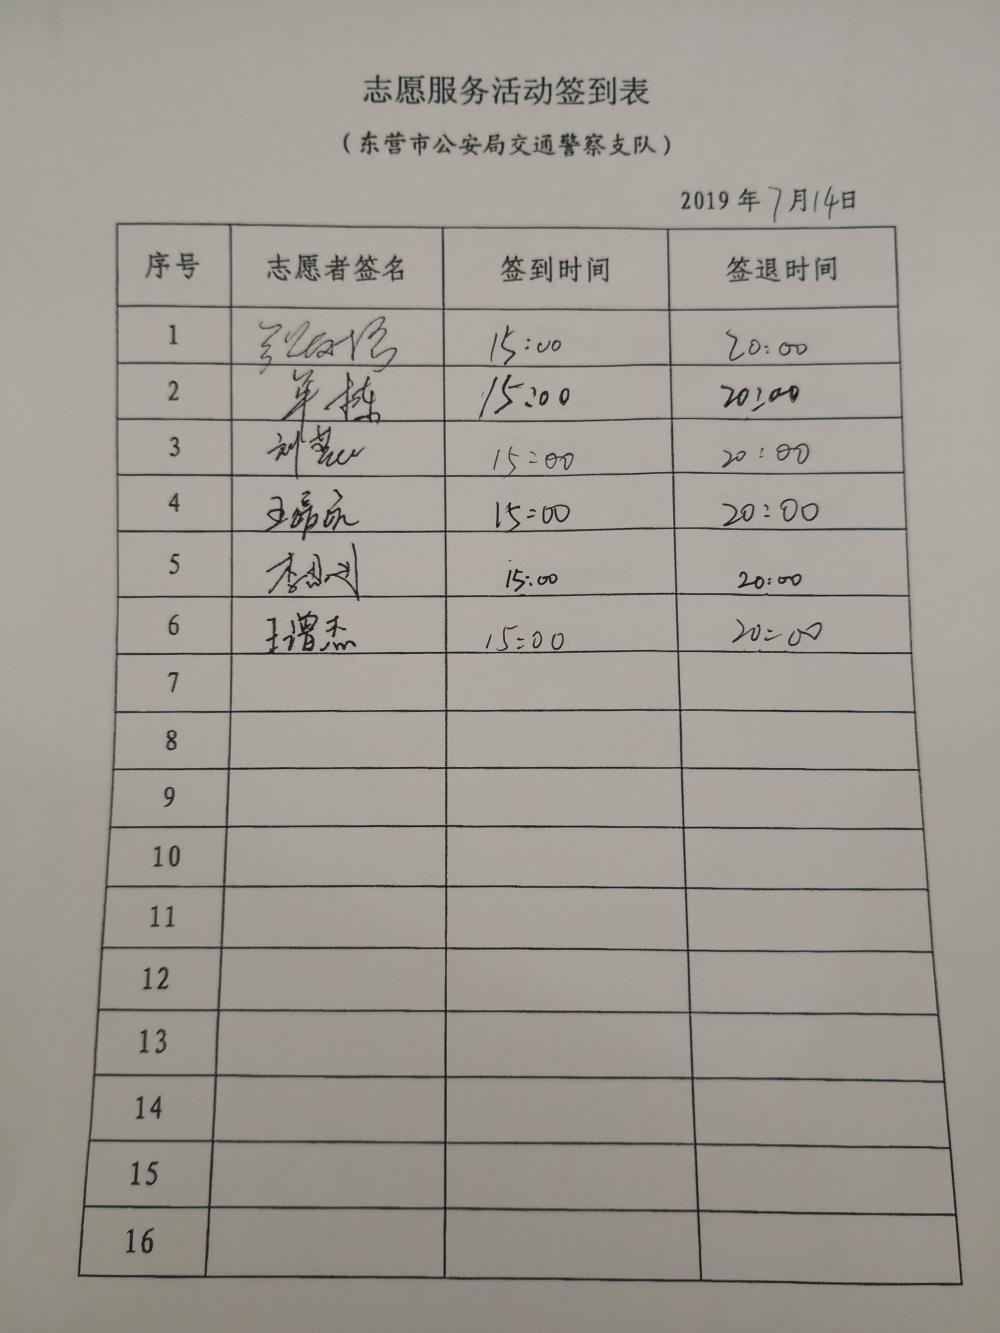 志愿服务活动签到表
（东营市公安局交通警察支队）
2019 年 7 月 14 日
序号 志愿者签名 签到时间 签退时间
1 15:00 20:00
2 单栋 15:00 20:00
3 刘 15:00 20:00
4 王磊 15:00 20:00
5 李 15:00 20:00
6 王增杰 15:00 20:00
7
8
9
10
11
12
13
14
15
16